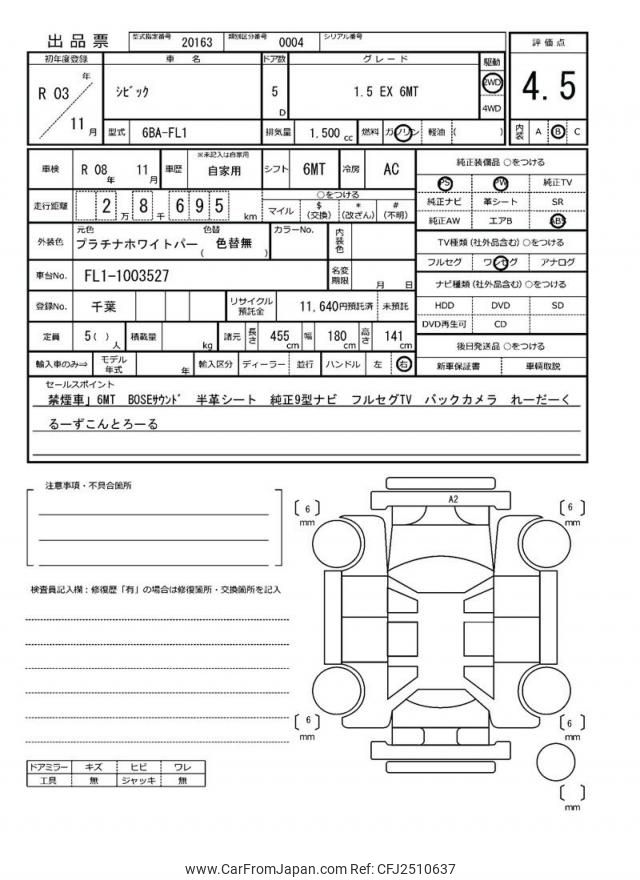 出品票
型式指定番号 20163 類別区分番号 0004 シリアル番号
初年度登録 車名 ドア数 グレード 駆動 評価点
R 03 年 11 月
ｼﾋﾞｯｸ 5 D 1.5 EX 6MT 2WD 4WD 4.5
型式 6BA-FL1 排気量 1.500 cc 燃料 ガソリン 軽油 ( ) 内装 A B C
車検 R 08 年 11 月 車歴 ※未記入は自家用 自家用 シフト 6MT 冷房 AC
走行距離 2 万 8 千 6 9 5 km
○をつける
マイル $ (交換) * (改ざん) # (不明)
外装色 元色 プラチナホワイトパー 色替 ( 色替無 ) カラーNo. 内装色
車台No. FL1-1003527 名変期限 月 日
登録No. 千葉 リサイクル預託金 11,640円預託済 未預託
定員 5 ( ) 人 積載量 kg 諸元 長さ 455 cm 幅 180 cm 高さ 141 cm
輸入車のみ⇒ モデル年式 年 輸入区分 ディーラー 並行 ハンドル 左 右
純正装備品 ○をつける
PS PW 純正TV
純正ナビ 革シート SR
純正AW エアB ABS
TV種類 (社外品含む) ○をつける
フルセグ ワンセグ アナログ
ナビ種類 (社外品含む) ○をつける
HDD DVD SD
DVD再生可 CD
後日発送品 ○をつける
新車保証書 車輌取説
セールスポイント
禁煙車」6MT BOSEｻｳﾝﾄﾞ 半革シート 純正9型ナビ フルセグTV バックカメラ れーだーく
るーずこんとろーる
注意事項・不具合箇所
検査員記入欄：修復歴「有」の場合は修復箇所・交換箇所を記入
A2
6 mm
6 mm
6 mm
6 mm
mm
ドアミラー キズ ヒビ ワレ
工具 無 ジャッキ 無
www.CarFromJapan.com Ref: CFJ2510637